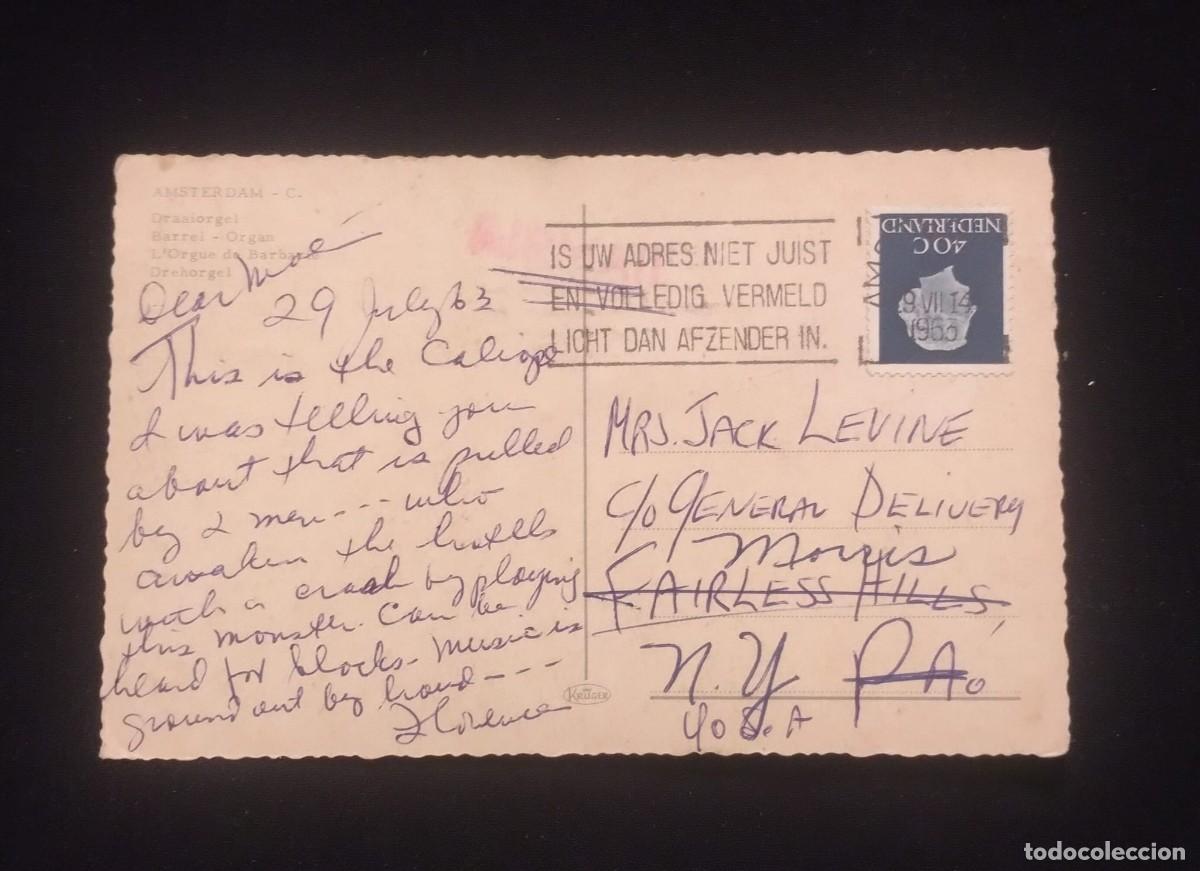 AMSTERDAM - C.
Draaiorgel
Barrel - Organ
L'Orgue de Barbarie
Drehorgel
Dear
29 July 63
This is the Caliope
I was telling you
about that is pulled
by 2 men --- who
awaken the hotels
with a crash by playing
this monster. Can be
heard for blocks - Music is
ground out by hand ---
Florence
KRUGER
IS UW ADRES NIET JUIST
EN VOLLEDIG VERMELD
LICHT DAN AFZENDER IN.
NEDERLAND
40 C
AMS
9 VII 14
1963
MRS. JACK LEVINE
C/O GENERAL DELIVERY
Morris
FAIRLESS HILLS,
N.Y PA.
U.S.A
todocoleccion